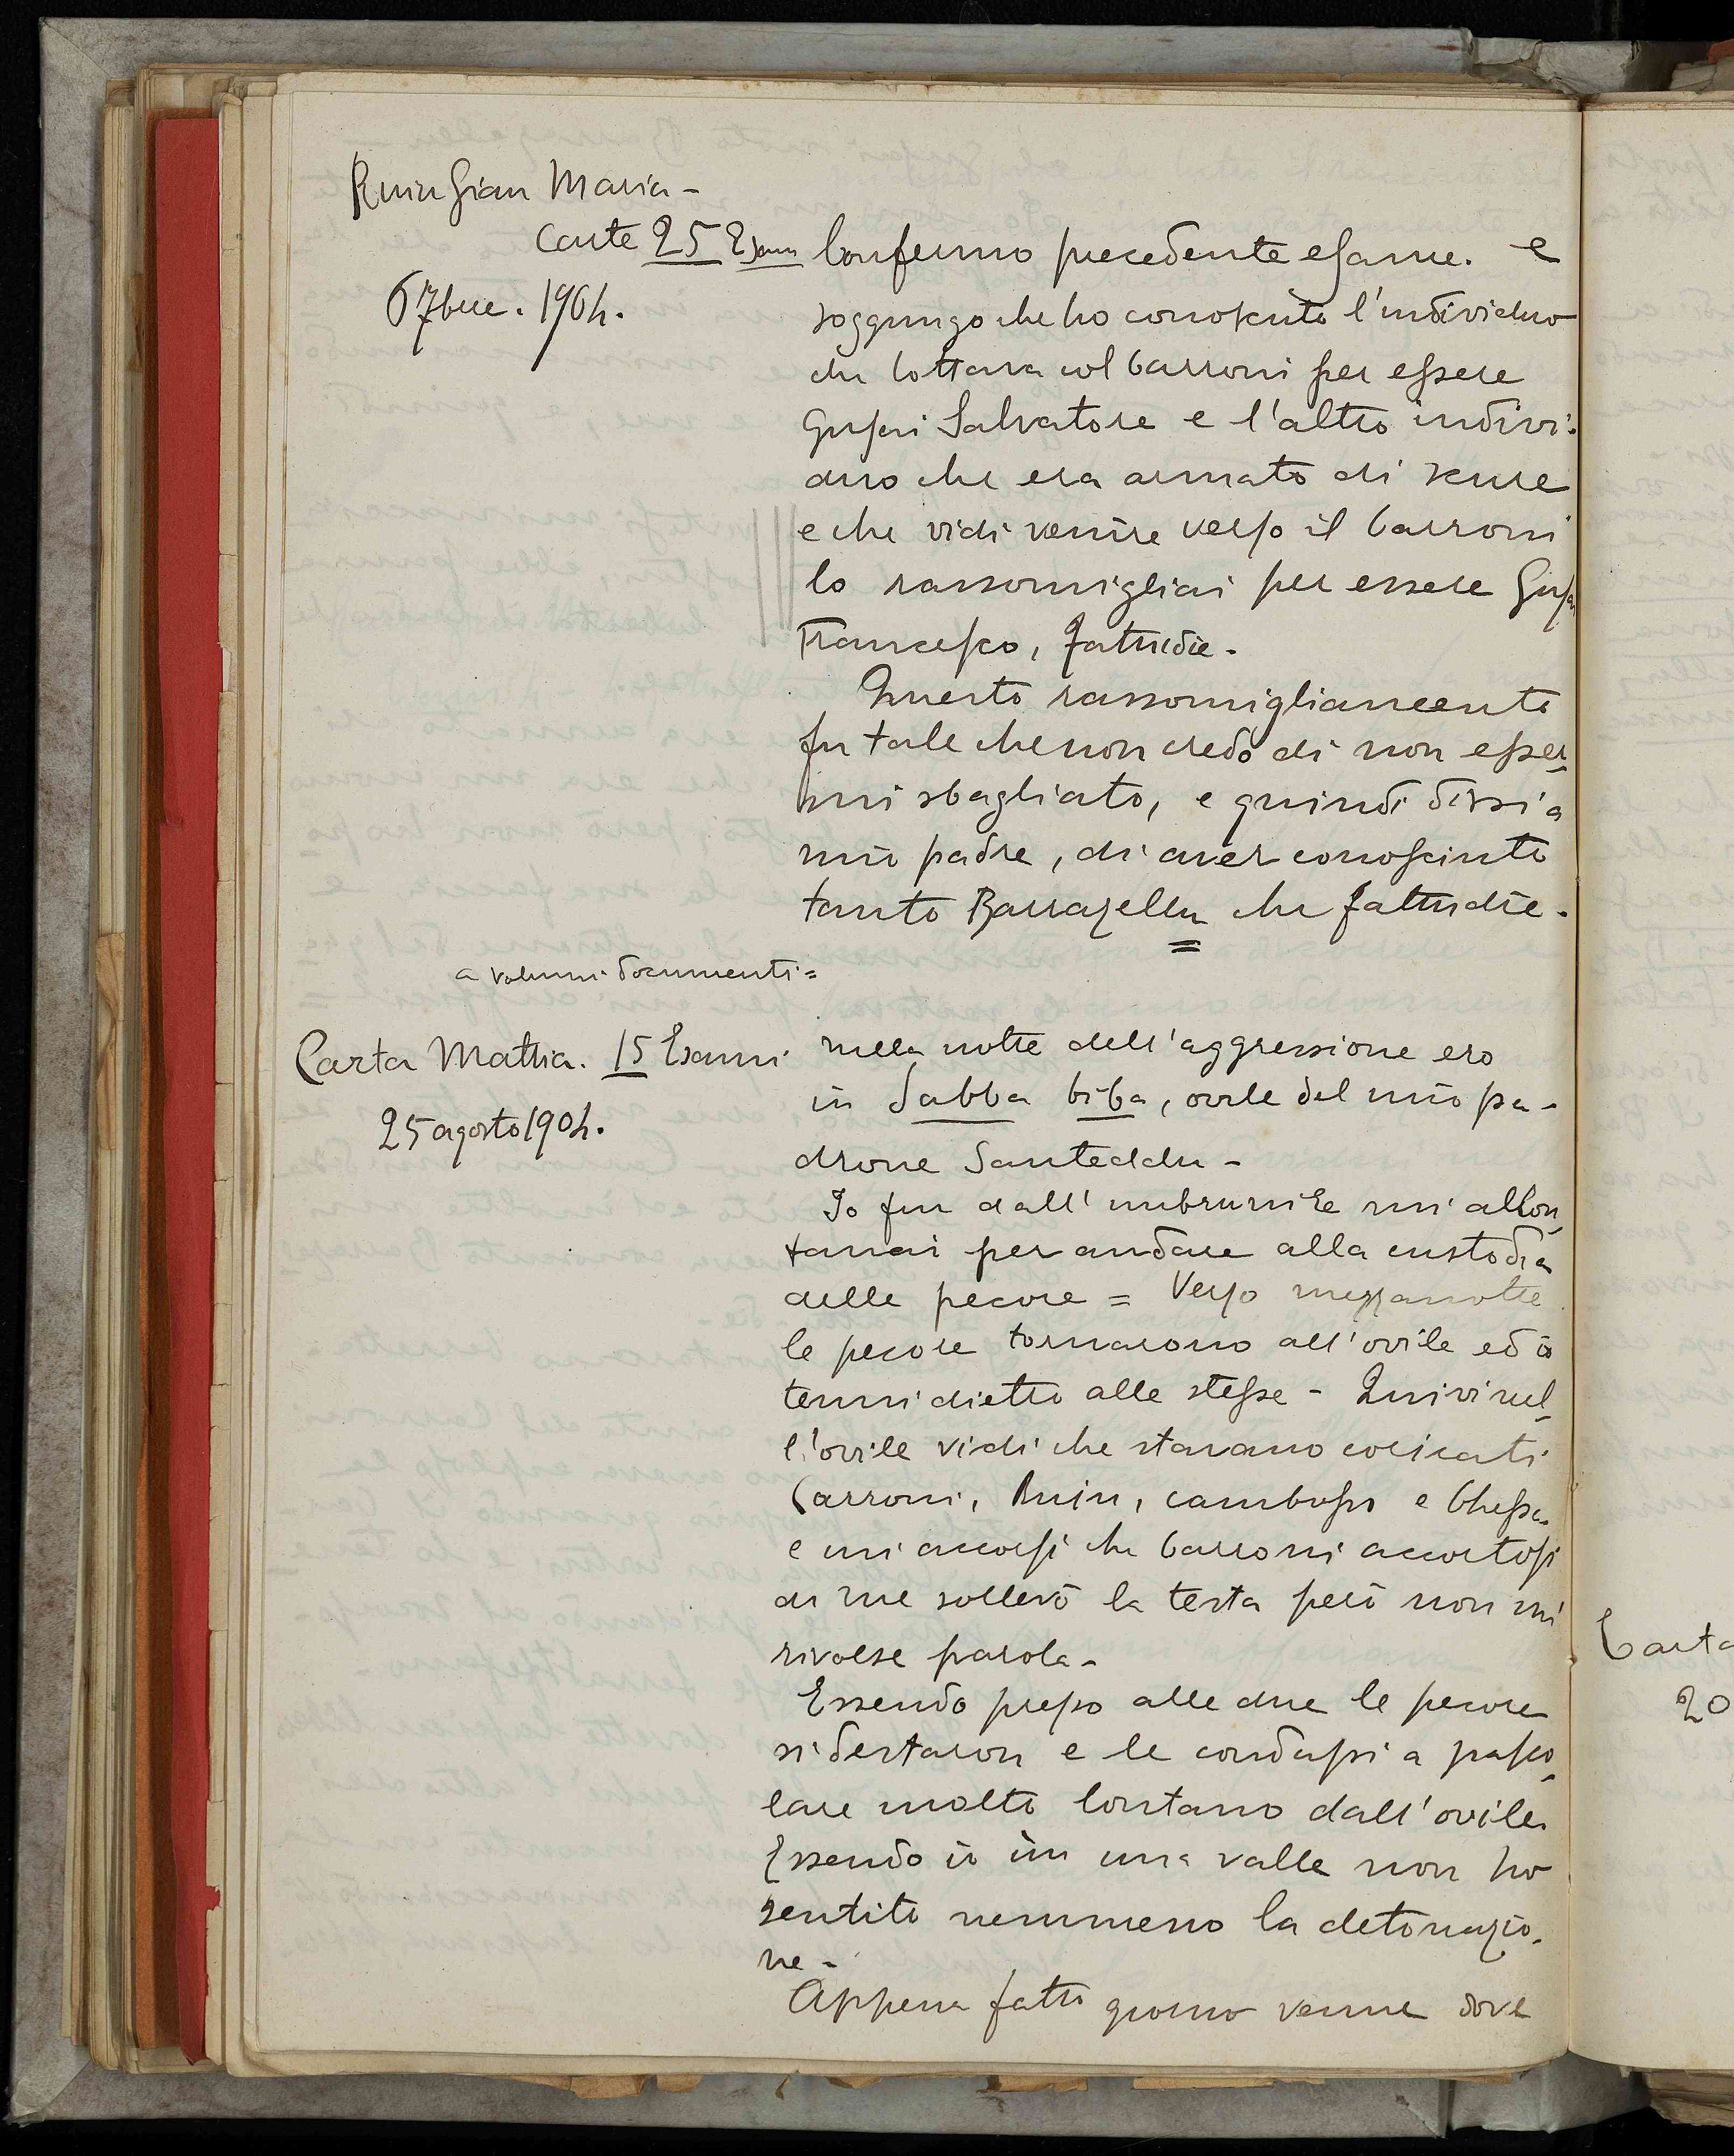 Ruiu Gian Maria -
Carte 25 Esam
6 7bre. 1904.
Confermo precedente esame. e
soggiungo che ho conosciuto l'individuo
che lottava col Carroni per essere
Gusai Salvatore e l'altro indivi-
duo che era armato di scure
e che vidi venire verso il Carroni
lo rassomigliai per essere Gusai
Francesco, Fattudie.
Questo rassomigliamento
fu tale che non credo di non esser-
mi sbagliato, e quindi dissi a
mio padre, di aver conosciuto
tanto Barrazellu che Fattudie.
a volumi documenti =
Carta Mattia. 15 Esami
25 agosto 1904.
nella notte dell'aggressione ero
in Sabba biba, ovile del mio pa-
drone Santeddu -
Io fin dall'imbrunire mi allon-
tanai per andare alla custodia
delle pecore = Verso mezzanotte
le pecore tornarono all'ovile ed io
tenni dietro alle stesse - Quivi nel-
l'ovile vidi che stavano coricati
Carroni, Ruiu, Cambosu e Chessa
e mi accorsi che Carroni accortosi
di me sollevò la testa però non mi
rivolse parola -
Essendo presso alle due le pecore
si destaron e le condussi a pasco-
lare molto lontano dall'ovile.
Essendo io in una valle non ho
sentito nemmeno la detonazio-
ne -
Appena fatto giorno venne dove
Carta
20